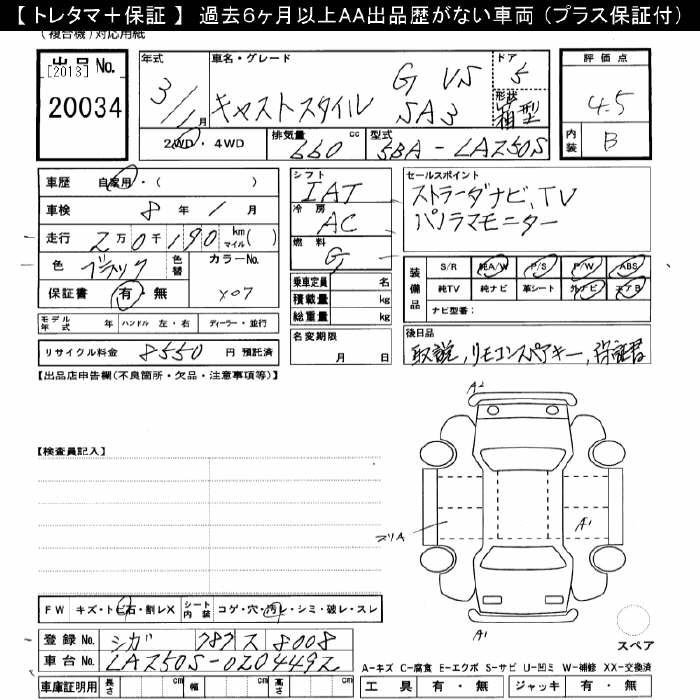 【 トレタマ＋保証 】 過去6ヶ月以上AA出品歴がない車両 (プラス保証付)
(複合機) 対応用紙
出品 No.
[2013]
20034
年式 3/1月
車名・グレード G VS
キャストスタイル SA3
ドア 5
形状 箱型
評価点 4.5
内装 B
2WD・4WD
排気量 660 cc
型式 5BA-LA250S
車歴 自家用・( )
車検 8年 1月
走行 2万0千190 km マイル( )
色 ブラック 色替 カラーNo.
保証書 有・無 X07
シフト IAT
冷房 AC
燃料 G
乗車定員 名
積載量 kg
総重量 kg
名変期限
月 日
セールスポイント
ストラーダナビ、TV
パノラマモニター
装備品 S/R 純A/W P/S P/W ABS
純TV 純ナビ 革シート 外ナビ エアB
ナビ型番：
後日品
取説，リモコンスペアキー，保証書
モデル年式 年 ハンドル 左・右 ディーラー・並行
リサイクル料金 8550 円 預託済
【出品店申告欄(不良箇所・欠品・注意事項等)】
【検査員記入】
A2
A1
A1
FW キズ・トビ石・割レX シート内装 コゲ・穴・汚レ・シミ・破レ・スレ
登録 No. シガ 787 ス 8008
車台 No. LA250S-0204492
車庫証明用 長さ cm 幅 cm 高さ cm
スペア
A-キズ C-腐食 E-エクボ S-サビ U-凹ミ W-補修 XX-交換済
工具 有・無 ジャッキ 有・無